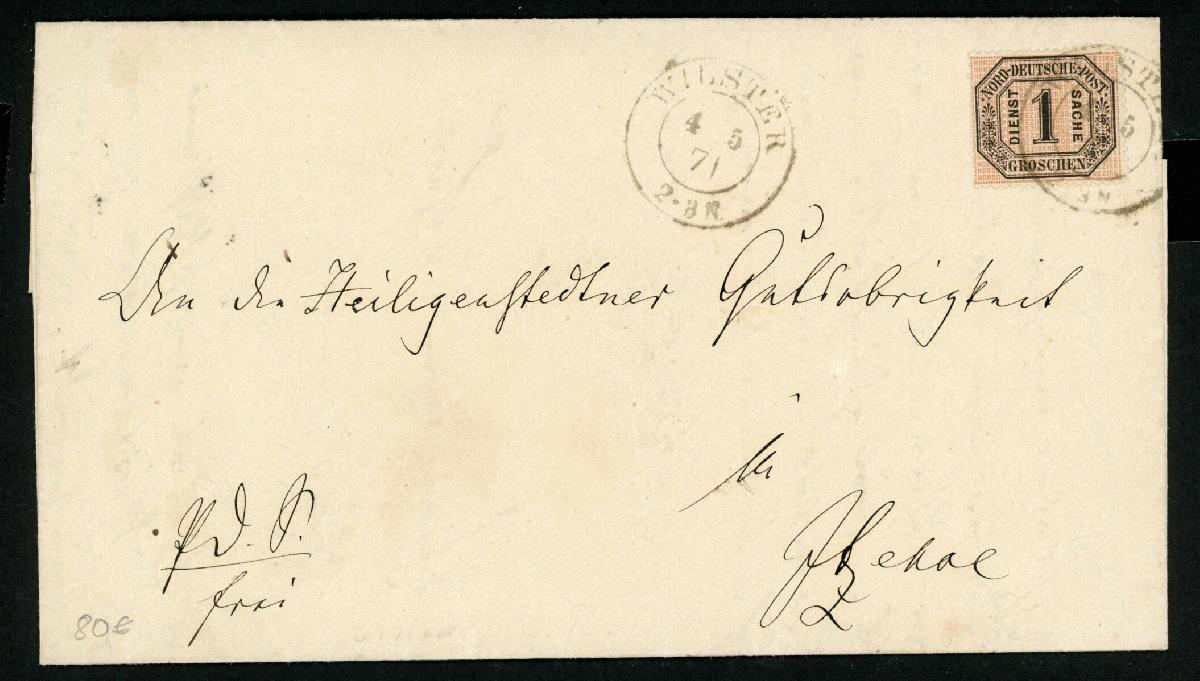 WILSTER
4 5
71
2-3N.
NORD-DEUTSCHE-POST
DIENST 1 SACHE
GROSCHEN
An die Heiligenstedtner Gutsobrigkeit
in
Itzehoe
frei
80€